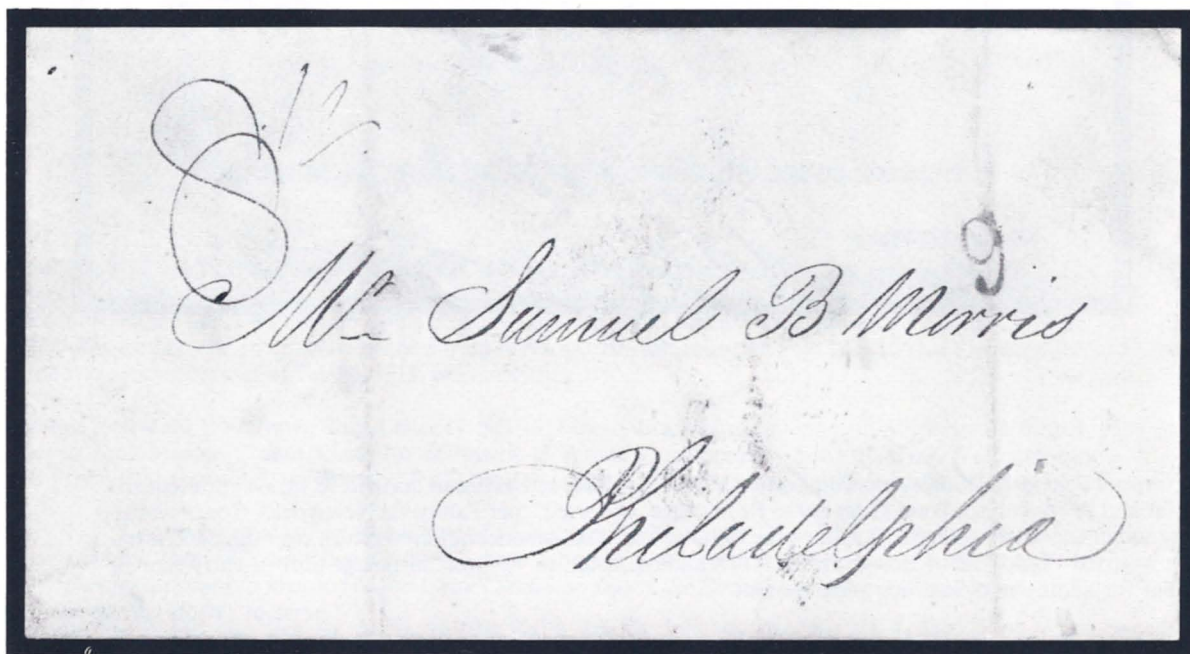 8
9
Mr Samuel B Morris
Philadelphia